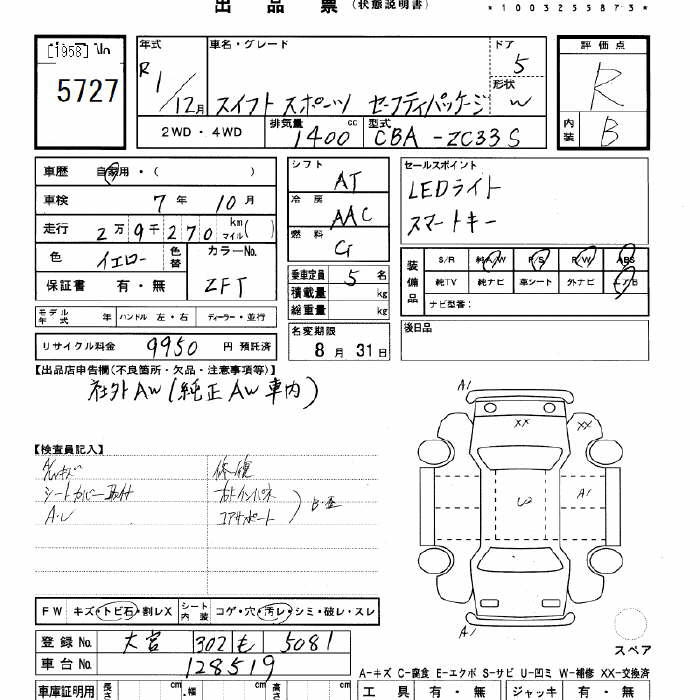 出 品 票 (状態説明書)
*1003255873*
[1958]
5727
年式 R1/12月
車名・グレード スイフト スポーツ セーフティパッケージ
ドア 5
形状 W
評価点 R
内装 B
2WD ・ 4WD
排気量 1400 cc
型式 CBA-ZC33S
車歴 自家用・( )
車検 7年 10月
走行 2万9千270 km マイル( )
色 イエロー 色替
カラーNo. ZFT
保証書 有・無
モデル年式 年 ハンドル 左・右 ディーラー・並行
リサイクル料金 9950 円 預託済
シフト AT
冷房 AAC
燃料 G
乗車定員 5 名
積載量 kg
総重量 kg
名変期限
8月31日
セールスポイント
LEDライト
スマートキー
装備品
S/R 純A/W P/S P/W ABS
純TV 純ナビ 革シート 外ナビ エアB
ナビ型番:
後日品
【出品店申告欄(不良箇所・欠品・注意事項等)】
社外AW(純正AW車内)
【検査員記入】
シートカバー取付
A・U
修復
コアサポート
A1
XX
XX
A1
U3
A1
スペア
FW キズ・トビ石・割レX シート内装 コゲ・穴・汚レ・シミ・破レ・スレ
登録No. 大宮 302 も 5081
車台No. 128519
A-キズ C-腐食 E-エクボ S-サビ U-凹ミ W-補修 XX-交換済
車庫証明用 長さ cm 幅 cm cm
工具 有・無 ジャッキ 有・無